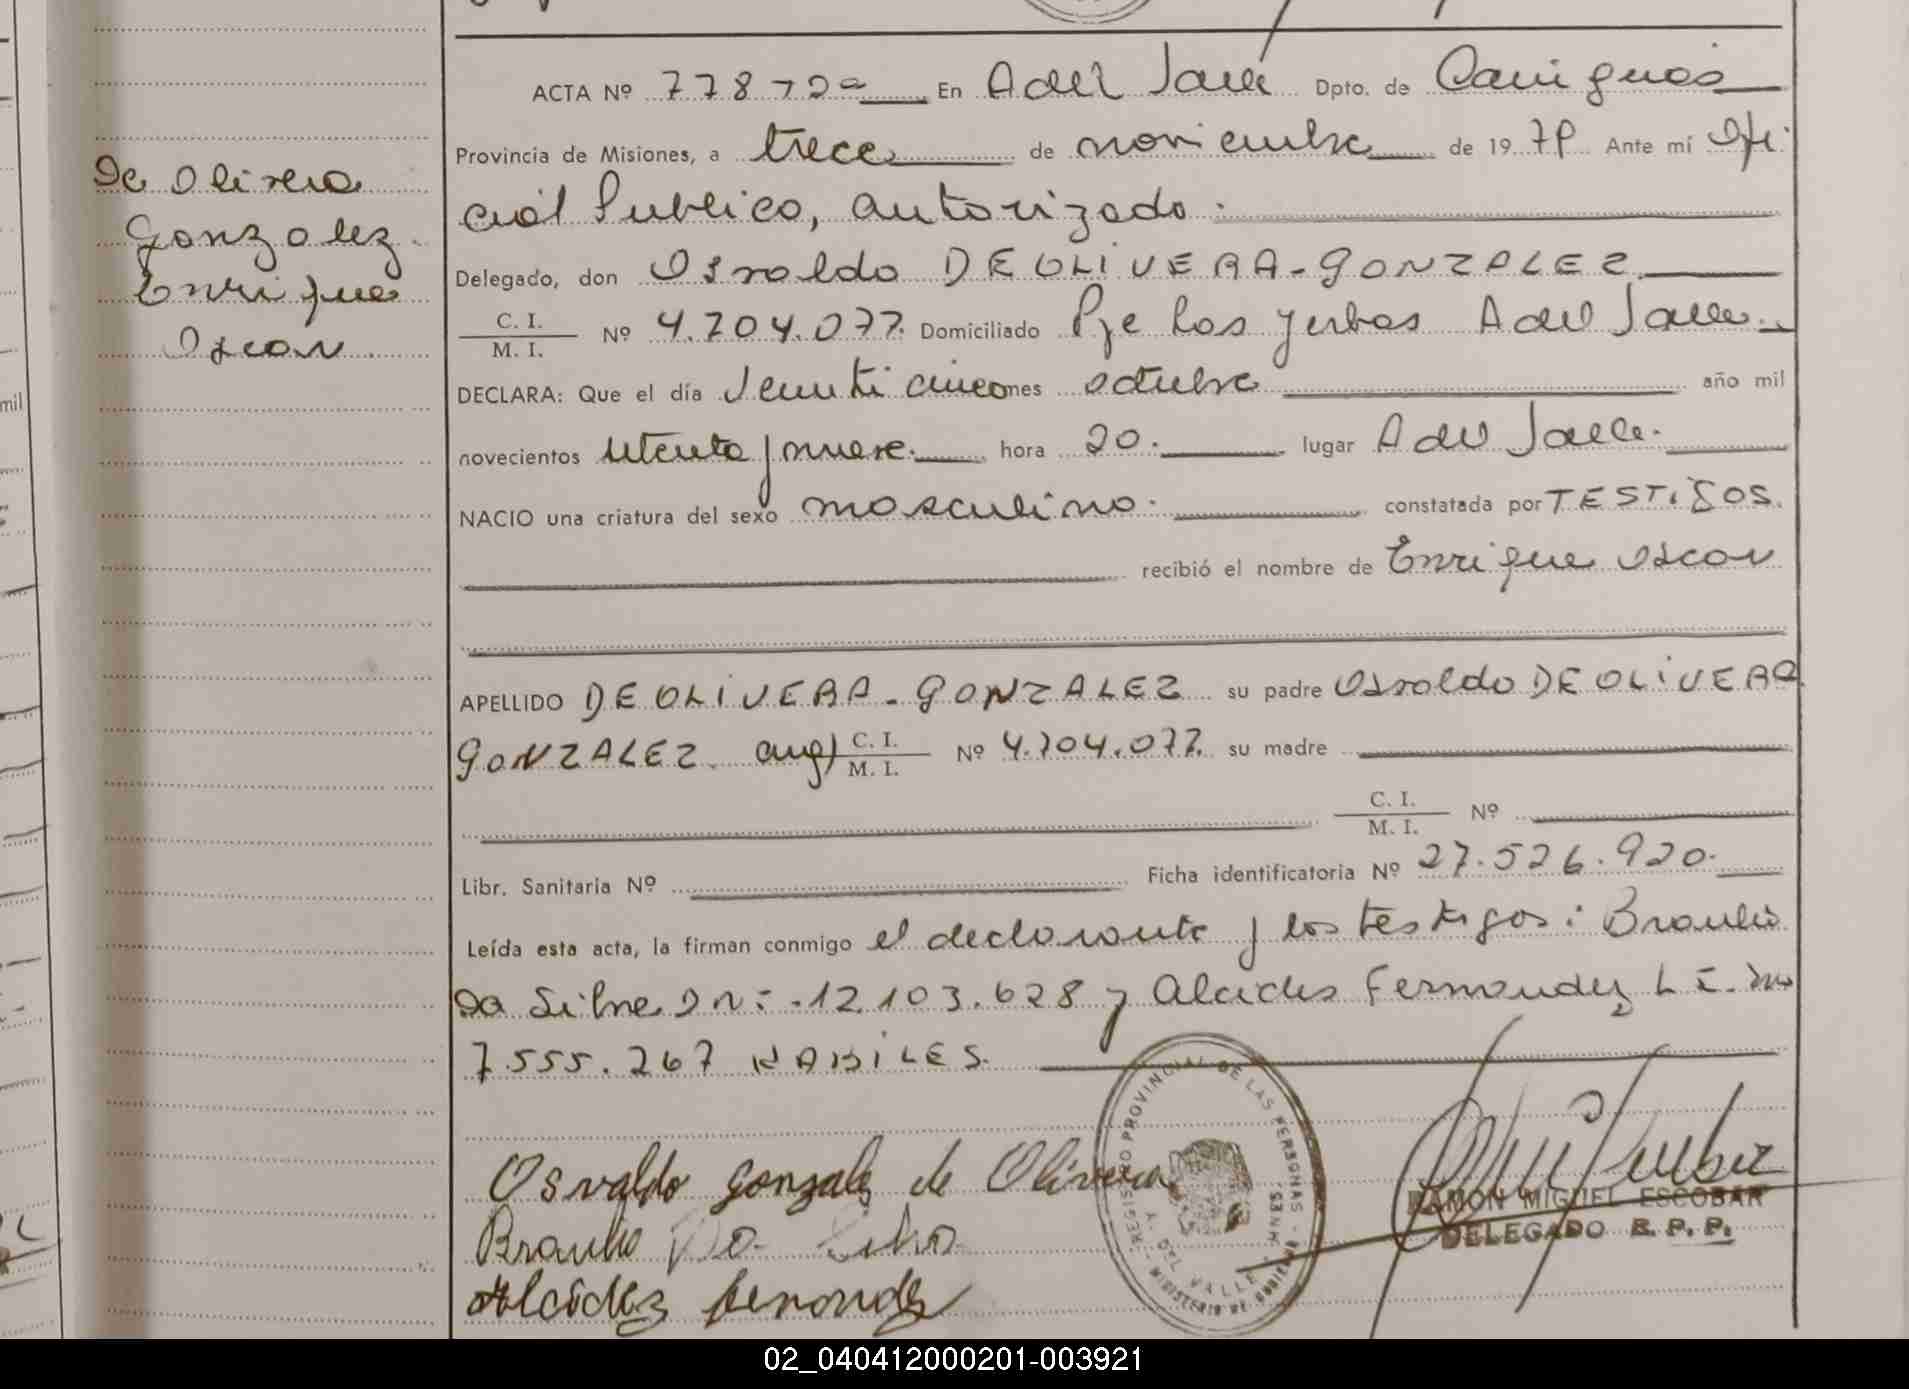 De Olivera
Gonzalez
Enrique
Oscar
ACTA Nº 778-2a En A del Valle Dpto. de Cainguas
Provincia de Misiones, a trece de noviembre de 1979 Ante mí Ofi
cial Publico, autorizado.
Delegado, don Osvaldo DE OLIVERA-GONZALEZ
C. I. / M. I. Nº 4.704.077. Domiciliado Pje Las Yerbas A del Valle.
DECLARA: Que el día Veinticinco mes octubre año mil
novecientos setenta y nueve. hora 20. lugar A del Valle.
NACIO una criatura del sexo masculino. constatada por TESTIGOS.
recibió el nombre de Enrique Oscar
APELLIDO DE OLIVERA-GONZALEZ su padre Osvaldo DE OLIVERA
GONZALEZ. arg) C. I. / M. I. Nº 4.704.077. su madre
C. I. / M. I. Nº
Libr. Sanitaria Nº Ficha identificatoria Nº 27.526.920.
Leída esta acta, la firman conmigo el declarante y los testigos: Braulio
Da Silva DN: 12.103.628 y Alcides Fernandez L E.
7.555.267 HABILES.
REGISTRO PROVINCIAL DE LAS PERSONAS - MNES.
MINISTERIO DE
Osvaldo Gonzalez de Olivera
Braulio Da Silva
Alcidez Fernandez
RAMON MIGUEL ESCOBAR
DELEGADO R. P. P.
02_040412000201-003921